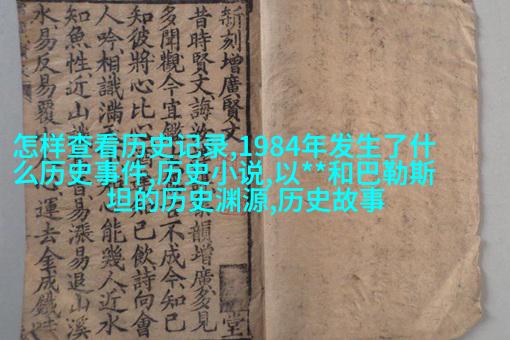 怎样查看历史记录,1984年发生了什
么历史事件,历史小说,以**和巴勒斯
坦的历史渊源,历史故事
新刻增廣賢文
堂
昔時賢文誨汝韻增廣多見
多聞觀今宜鑒不成今知己
知彼將心比心己飲詩向會
人吟相識滿心能幾人近水
知魚性近山識易漲易退山溪
水易反易覆運去金成鐵時